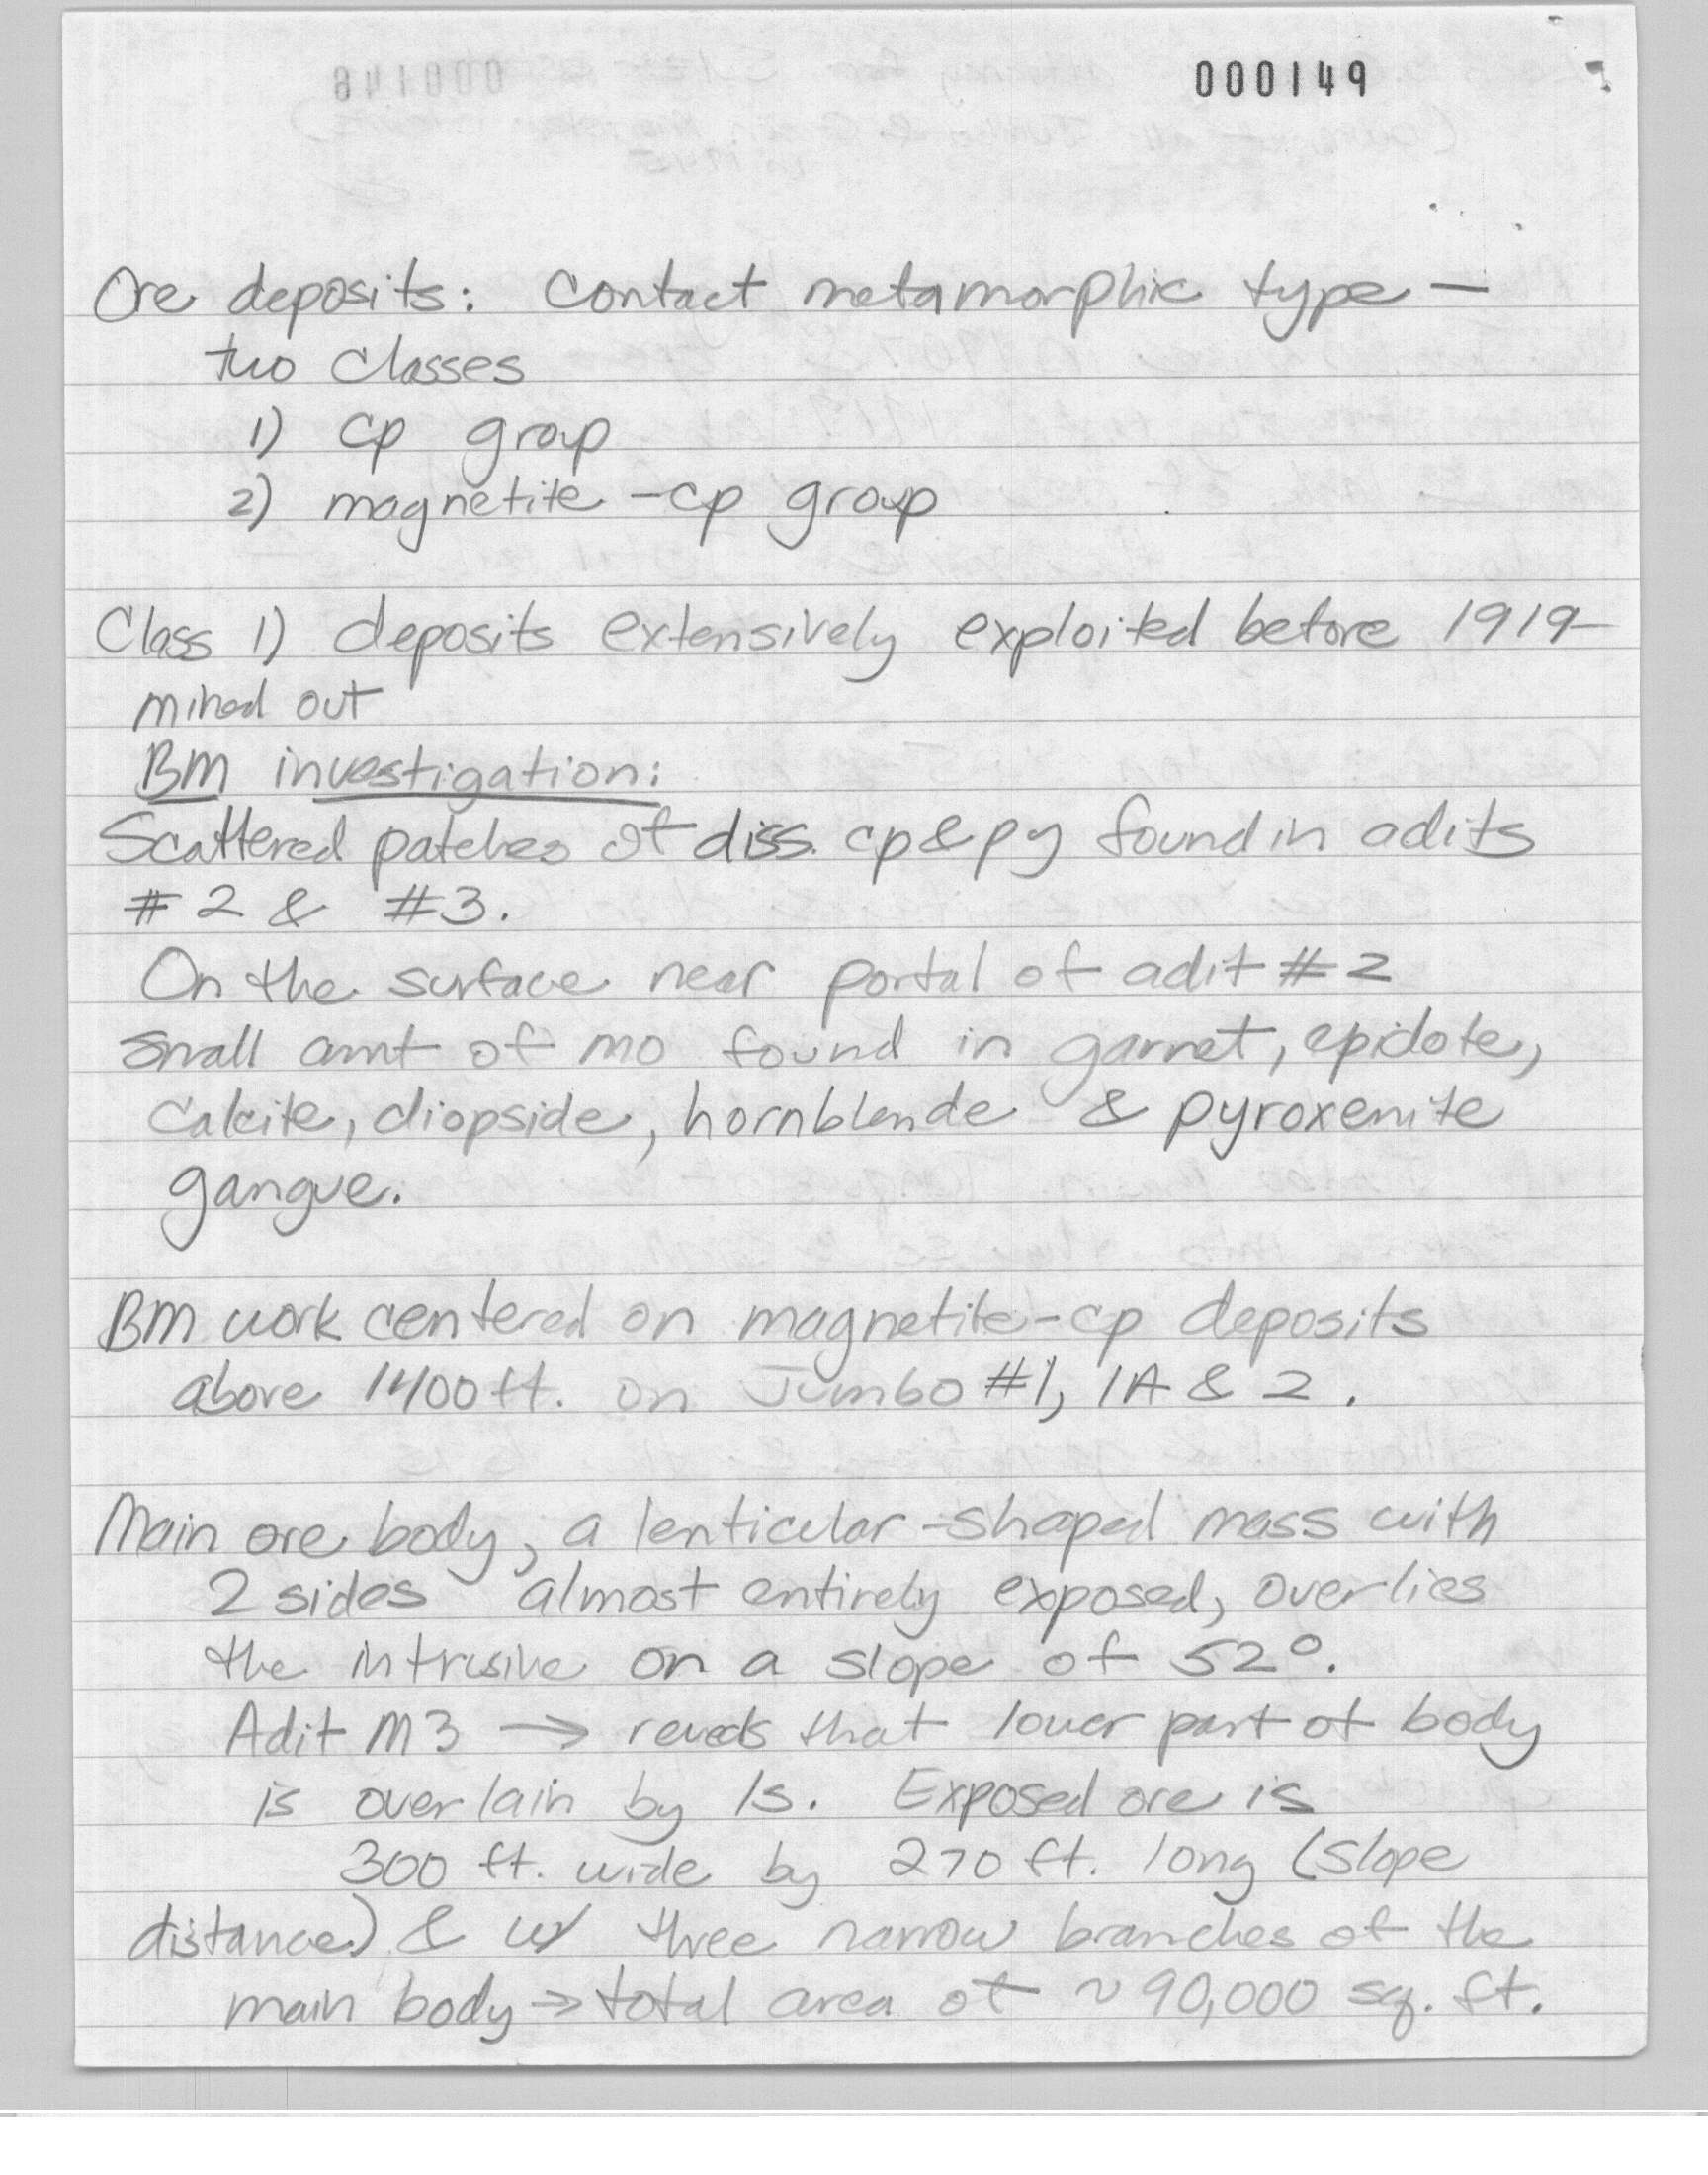 000149
Ore deposits: Contact metamorphic type —
two classes
1) cp group
2) magnetite - cp group
Class 1) deposits extensively exploited before 1919-
mined out
BM investigation:
Scattered patches of diss. cp & py found in adits
#2 & #3.
On the surface near portal of adit #2
small amt of mo found in garnet, epidote,
calcite, diopside, hornblende & pyroxenite
gangue.
BM work centered on magnetite-cp deposits
above 1400 ft. on Jumbo #1, 1A & 2.
Main ore body, a lenticular-shaped mass with
2 sides almost entirely exposed, overlies
the intrusive on a slope of 52°.
Adit M3 → reveals that lower part of body
is overlain by ls. Exposed ore is
300 ft. wide by 270 ft. long (slope
distance) & w/ three narrow branches of the
main body → total area of ~90,000 sq. ft.